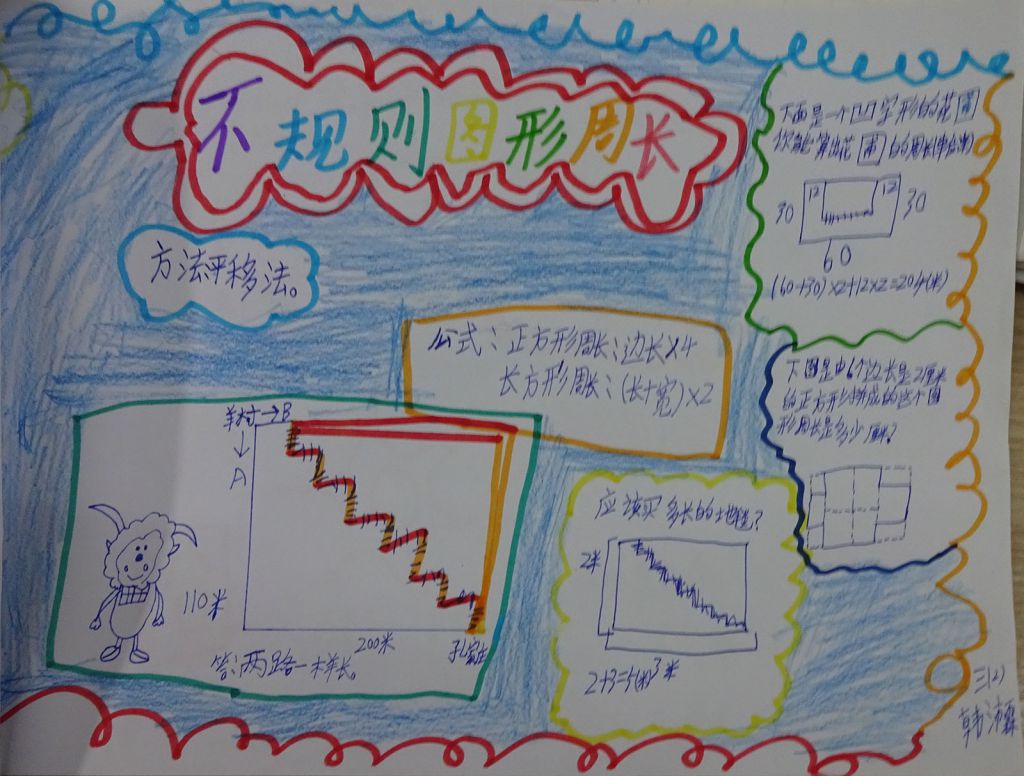 不规则图形周长
方法平移法。
公式：正方形周长：边长×4
长方形周长：(长+宽)×2
羊村→B
↓
A
110米
200米
答：两路一样长。
下面是一个凹字形的花圃
你能算出花圃的周长(单位:米)
12 12
30 30
60
(60+30)×2+12×2=204(米)
下图是由6个边长是2厘米
的正方形拼成的这个图
形周长是多少厘米?
应该买多长的地毯?
2米
3米
2+3=5(米)
三(2)
韩沛霖